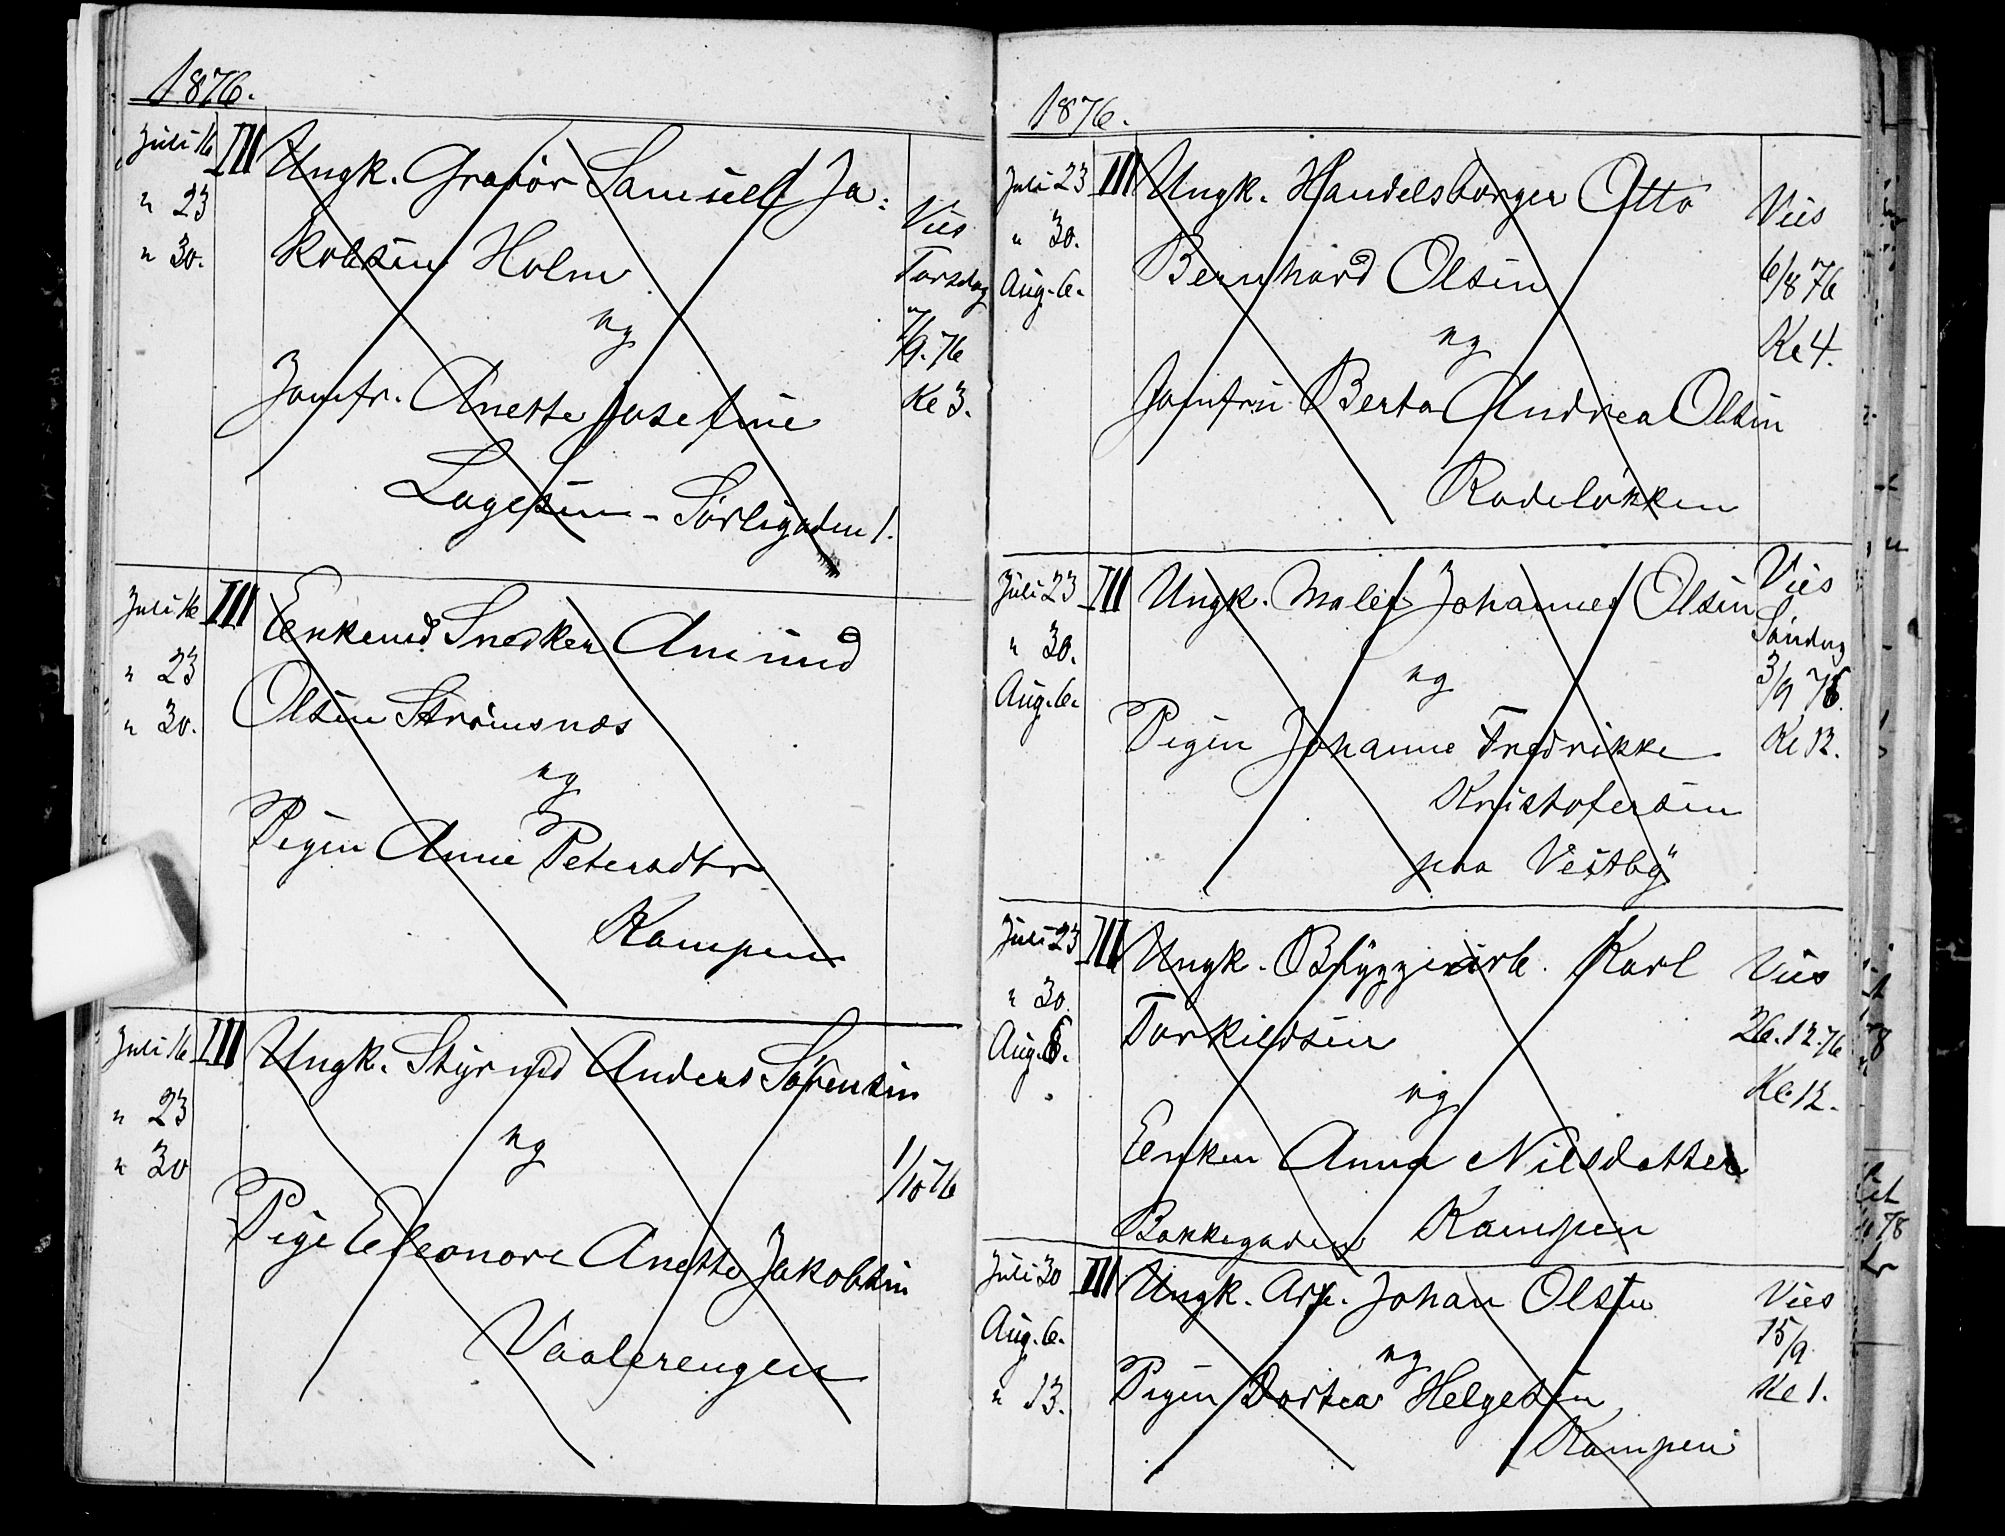 1876.
Juli 16 III Ungk. Gravör Samuel Ja-
" 23 kobsen Holm Vies
" 30. og Torsdag
7/9. 76
Jomfr. Anette Josefine Kl 3.
Lagesen - Sörligaden 1.
Juli 16 III Enkemd. Snedker Amund
" 23 Olsen Strömsnæs
" 30. og
Pigen Anne Petersdtr
Kampen
Juli 16 III Ungk. Styrmd Anders Sörensen
" 23 og
" 30 1/10 76
Pige Eleonore Anette Jakobsen
Vaalerengen
1876.
Juli 23 III Ungk. Handelsborger Otto Vies
" 30. Bernhard Olsen 6/8 76
Aug. 6. og Kl 4.
Jomfru Berta Andrea Olsen
Rodelökken
Juli 23 III Ungk. Maler Johannes Olsen Vies
" 30. og Söndag
Aug. 6. 3/9 76.
Pigen Johanne Fredrikke Kl 12.
Kristofersen
paa Vestby
Juli 23 III Ungk. Bryggeriarb. Karl Vies
" 30. Torkildsen 26.12.76
Aug. 6. og Kl. 12.
Enken Anna Nilsdatter
Bakkegaden Kampen
Juli 30 III Ungk. Arb. Johan Olsen Vies
Aug. 6. og 15/9
" 13. Pigen Dortea Helgesen Kl 1.
Kampen